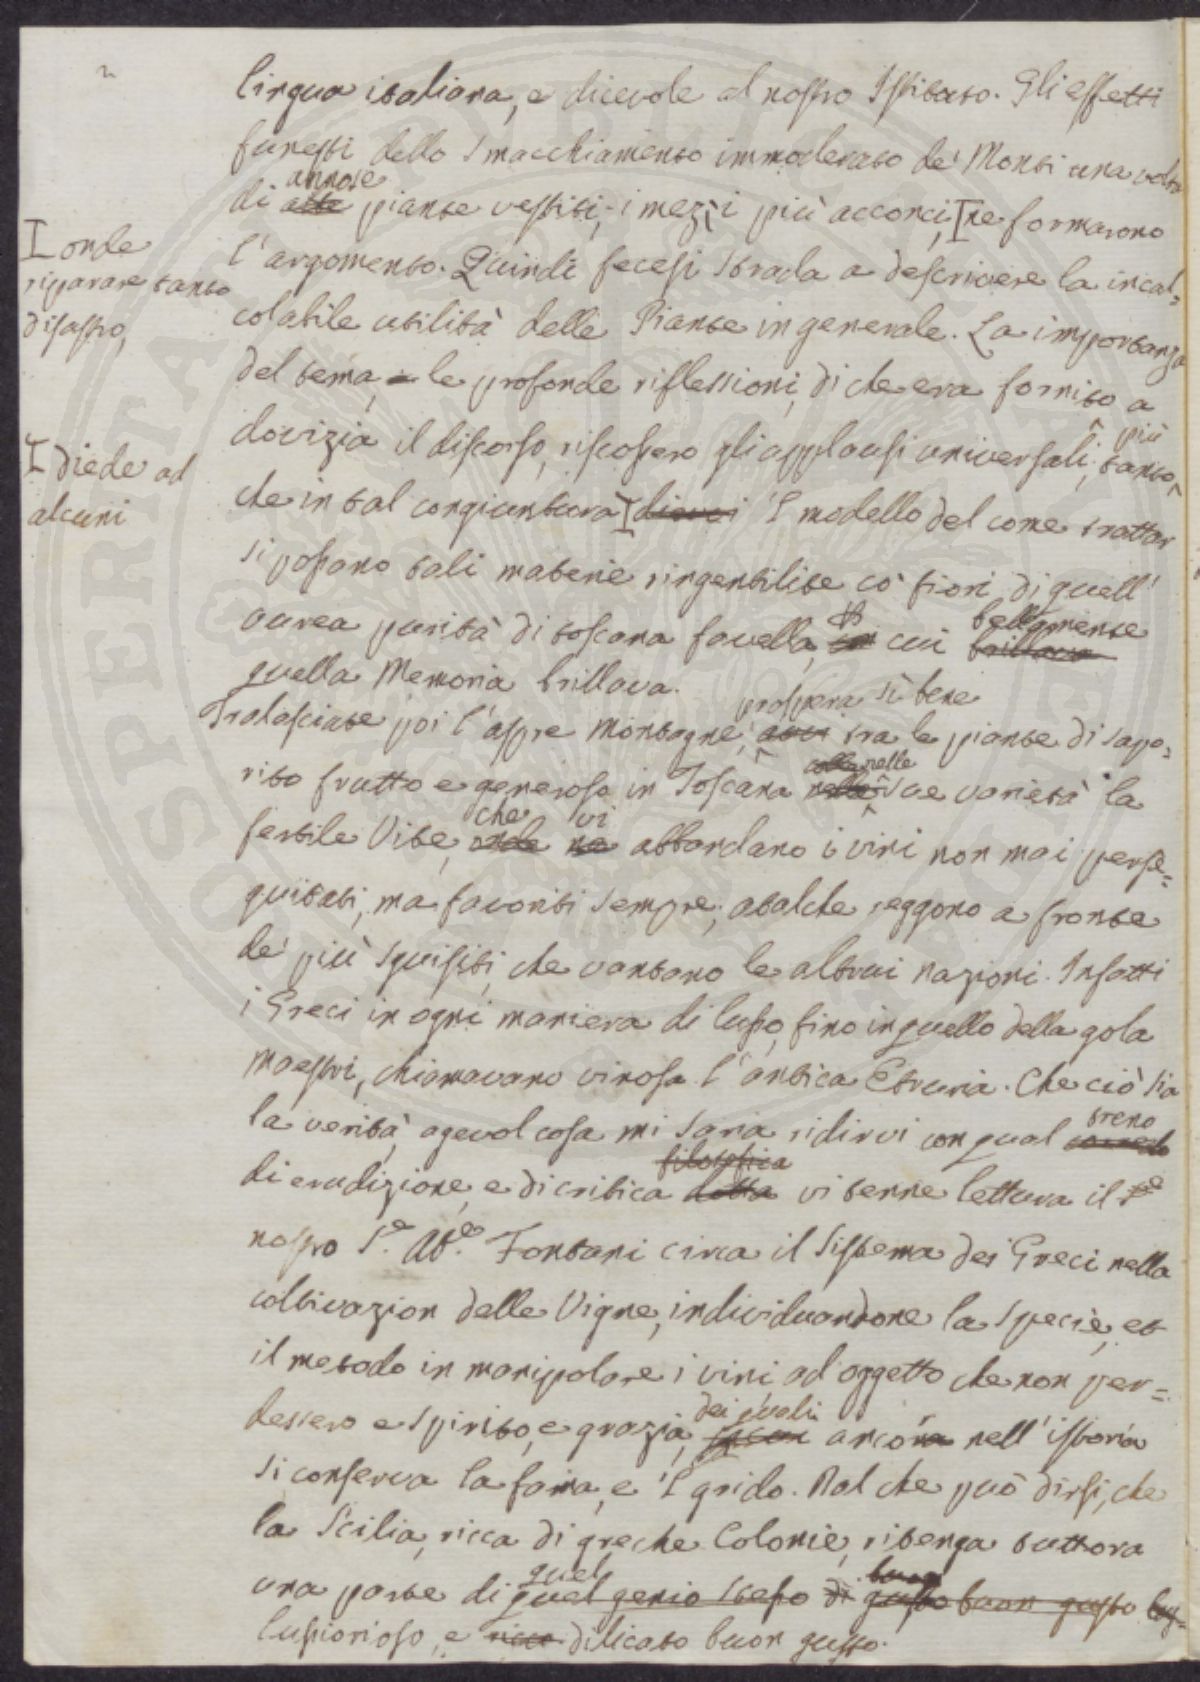 2
lingua italiana, e dicevole al nostro Istituto. Gli effetti
funesti dello smacchiamento immoderato de' Monti una volta
annose
di alte piante vestiti; i mezzi più acconci, I ne formarono
I onde
riparare tanto
disastro,
l'argomento. Quindi fecesi strada a descrivere la incal-
colabile utilità delle Piante in generale. La importanza
del tema, e le profonde riflessioni, di che era fornito a
dovizia il discorso, riscossero gli applausi universali, tanto più
I diede ad
alcuni
che in tal congiuntura I diedi 'l modello del come trattar
si possano tali materie ringentilite co' fiori di quell'
aurea purità di toscana favella, in di cui brillava bellamente
quella Memoria brillava.
Tralasciate poi l'aspre montagne, prospera sì bene tra le piante di sapo-
rito frutto e generoso in Toscana nelle sue varietà la
fertile Vite, onde ne che vi abbondano i vini non mai perse-
guitati, ma favoriti sempre; atalche reggono a fronte
de' più squisiti, che vantano le altrui nazioni. Infatti
i Greci in ogni maniera di lusso, fino in quello della gola
maestri, chiamavano vinosa l'antica Etruria. Che ciò sia
la verità, agevol cosa mi saria ridirvi con qual treno
di erudizione, e di critica dotta filosofica vi tenne lettura il
nostro Se. Abe. Fontani circa il Sistema dei Greci nella
coltivazion delle Vigne, individuandone la specie, et
il metodo in manipolare i vini ad oggetto che non per-
dessero e spirito, e grazia, dei quali ancora nell'istoria
si conserva la fama, e 'l grido. Dal che può dirsi, che
la Scilia, ricca di greche Colonie, ritenga tuttora
una parte di quel quel genio stesso di gusto buon gusto
lussorioso, e ricco dilicato buon gusto.